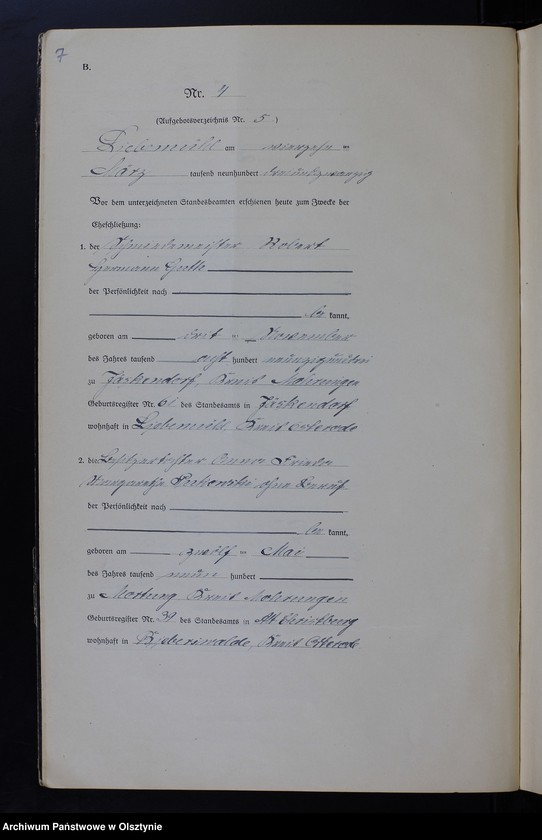 7
B.
Nr. 4
(Aufgebotsverzeichnis Nr. 5.)
Liebemühl am vierzehn ten
März tausend neunhundert dreiundzwanzig
Vor dem unterzeichneten Standesbeamten erschienen heute zum Zwecke der
Eheschließung:
1. der Schmiedemeister Robert
Hermann
der Persönlichkeit nach
be kannt,
geboren am dritten November
des Jahres tausend acht hundert
zu Jäskendorf, Kreis Mohrungen
Geburtsregister Nr. 61 des Standesamts in Jäskendorf
wohnhaft in Liebemühl, Kreis Osterode
2. die Besitzertochter Anna Frieda
Margarete ohne Beruf
der Persönlichkeit nach
be kannt,
geboren am zwölften Mai
des Jahres tausend neun hundert
zu Mortung Kreis Mohrungen
Geburtsregister Nr. 39 des Standesamts in Alt Christburg
wohnhaft in Bieberswalde, Kreis Osterode
Archiwum Państwowe w Olsztynie